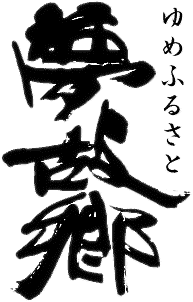 ゆめふるさと
夢故郷